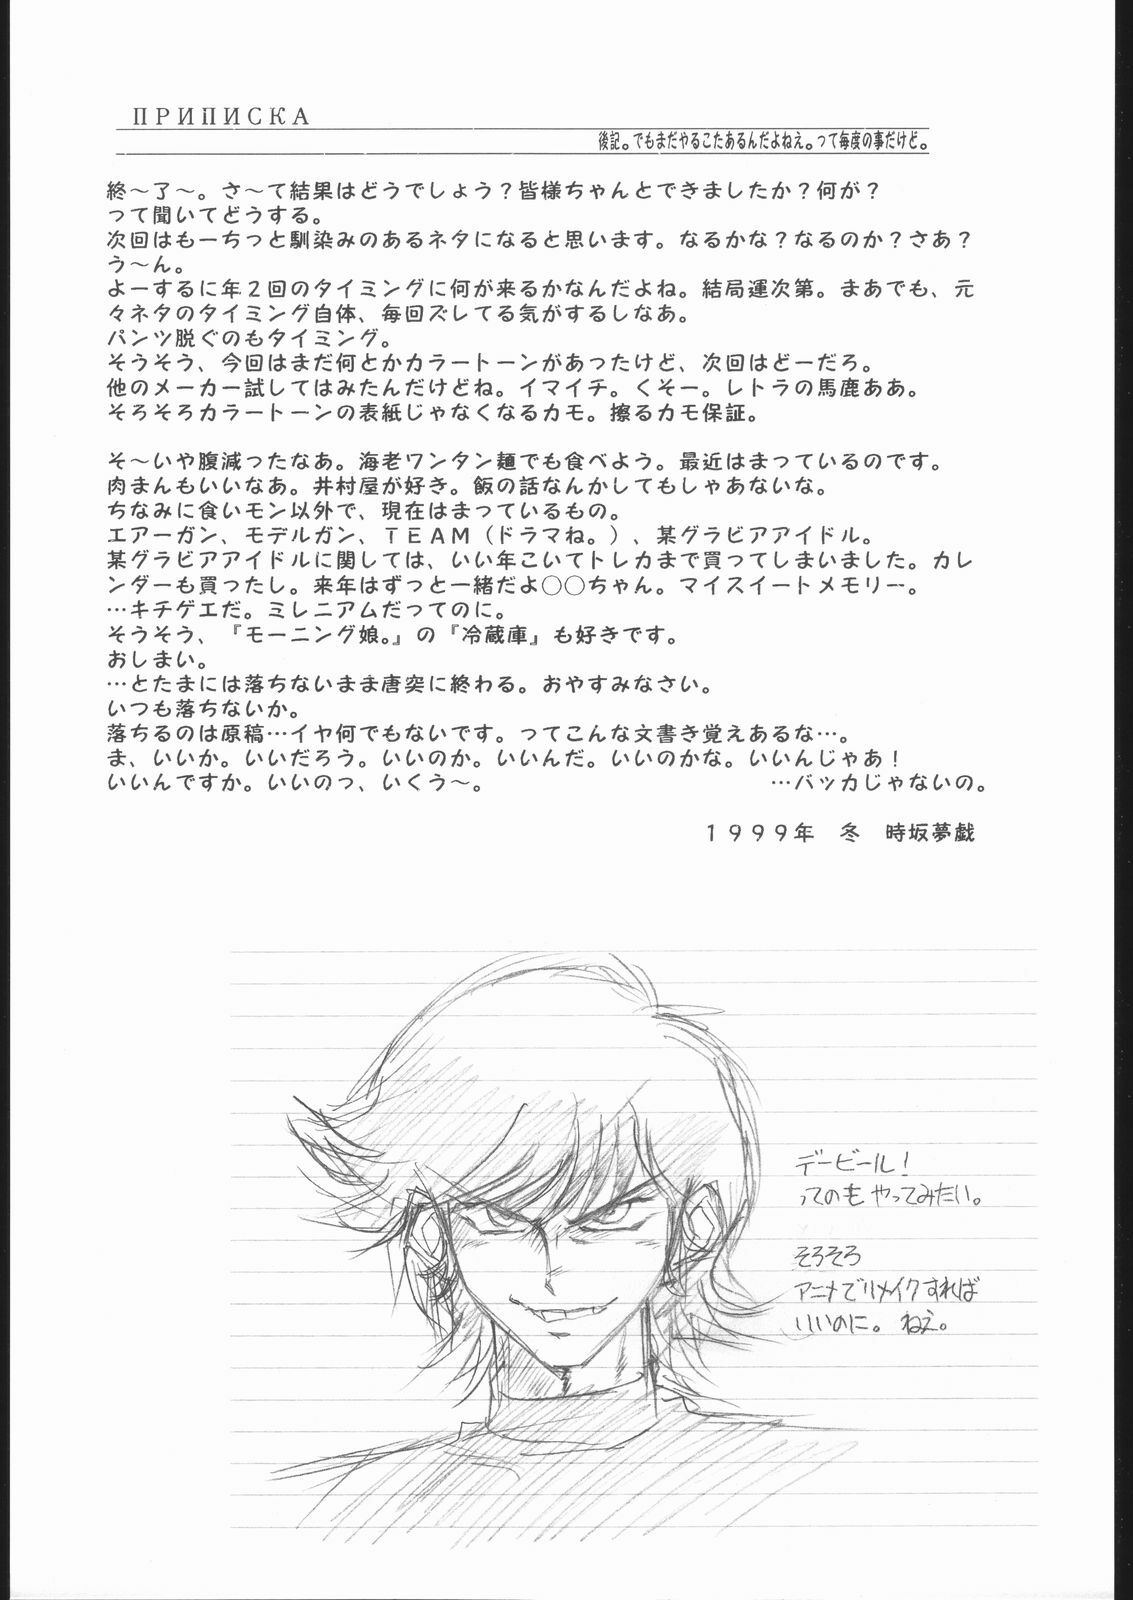 ПРИПИСКА
後記。でもまだやるこたあるんだよねえ。って毎度の事だけど。
終～了～。さ～て結果はどうでしょう？皆様ちゃんとできましたか？何が？
って聞いてどうする。
次回はもーちっと馴染みのあるネタになると思います。なるかな？なるのか？さあ？
う～ん。
よーするに年２回のタイミングに何が来るかなんだよね。結局運次第。まあでも、元
々ネタのタイミング自体、毎回ズレてる気がするしなあ。
パンツ脱ぐのもタイミング。
そうそう、今回はまだ何とかカラートーンがあったけど、次回はどーだろ。
他のメーカー試してはみたんだけどね。イマイチ。くそー。レトラの馬鹿ああ。
そろそろカラートーンの表紙じゃなくなるカモ。擦るカモ保証。
そ～いや腹減ったなあ。海老ワンタン麺でも食べよう。最近はまっているのです。
肉まんもいいなあ。井村屋が好き。飯の話なんかしてもしゃあないな。
ちなみに食いモン以外で、現在はまっているもの。
エアーガン、モデルガン、ＴＥＡＭ（ドラマね。）、某グラビアアイドル。
某グラビアアイドルに関しては、いい年こいてトレカまで買ってしまいました。カレ
ンダーも買ったし。来年はずっと一緒だよ○○ちゃん。マイスイートメモリー。
…キチゲエだ。ミレニアムだってのに。
そうそう、『モーニング娘。』の『冷蔵庫』も好きです。
おしまい。
…とたまには落ちないまま唐突に終わる。おやすみなさい。
いつも落ちないか。
落ちるのは原稿…イヤ何でもないです。ってこんな文書き覚えあるな…。
ま、いいか。いいだろう。いいのか。いいんだ。いいのかな。いいんじゃあ！
いいんですか。いいのっ、いくう～。　…バッカじゃないの。
１９９９年　冬　時坂夢戯
デービール！
ってのも やってみたい。
そろそろ
アニメでリメイクすれば
いいのに。 ねえ。